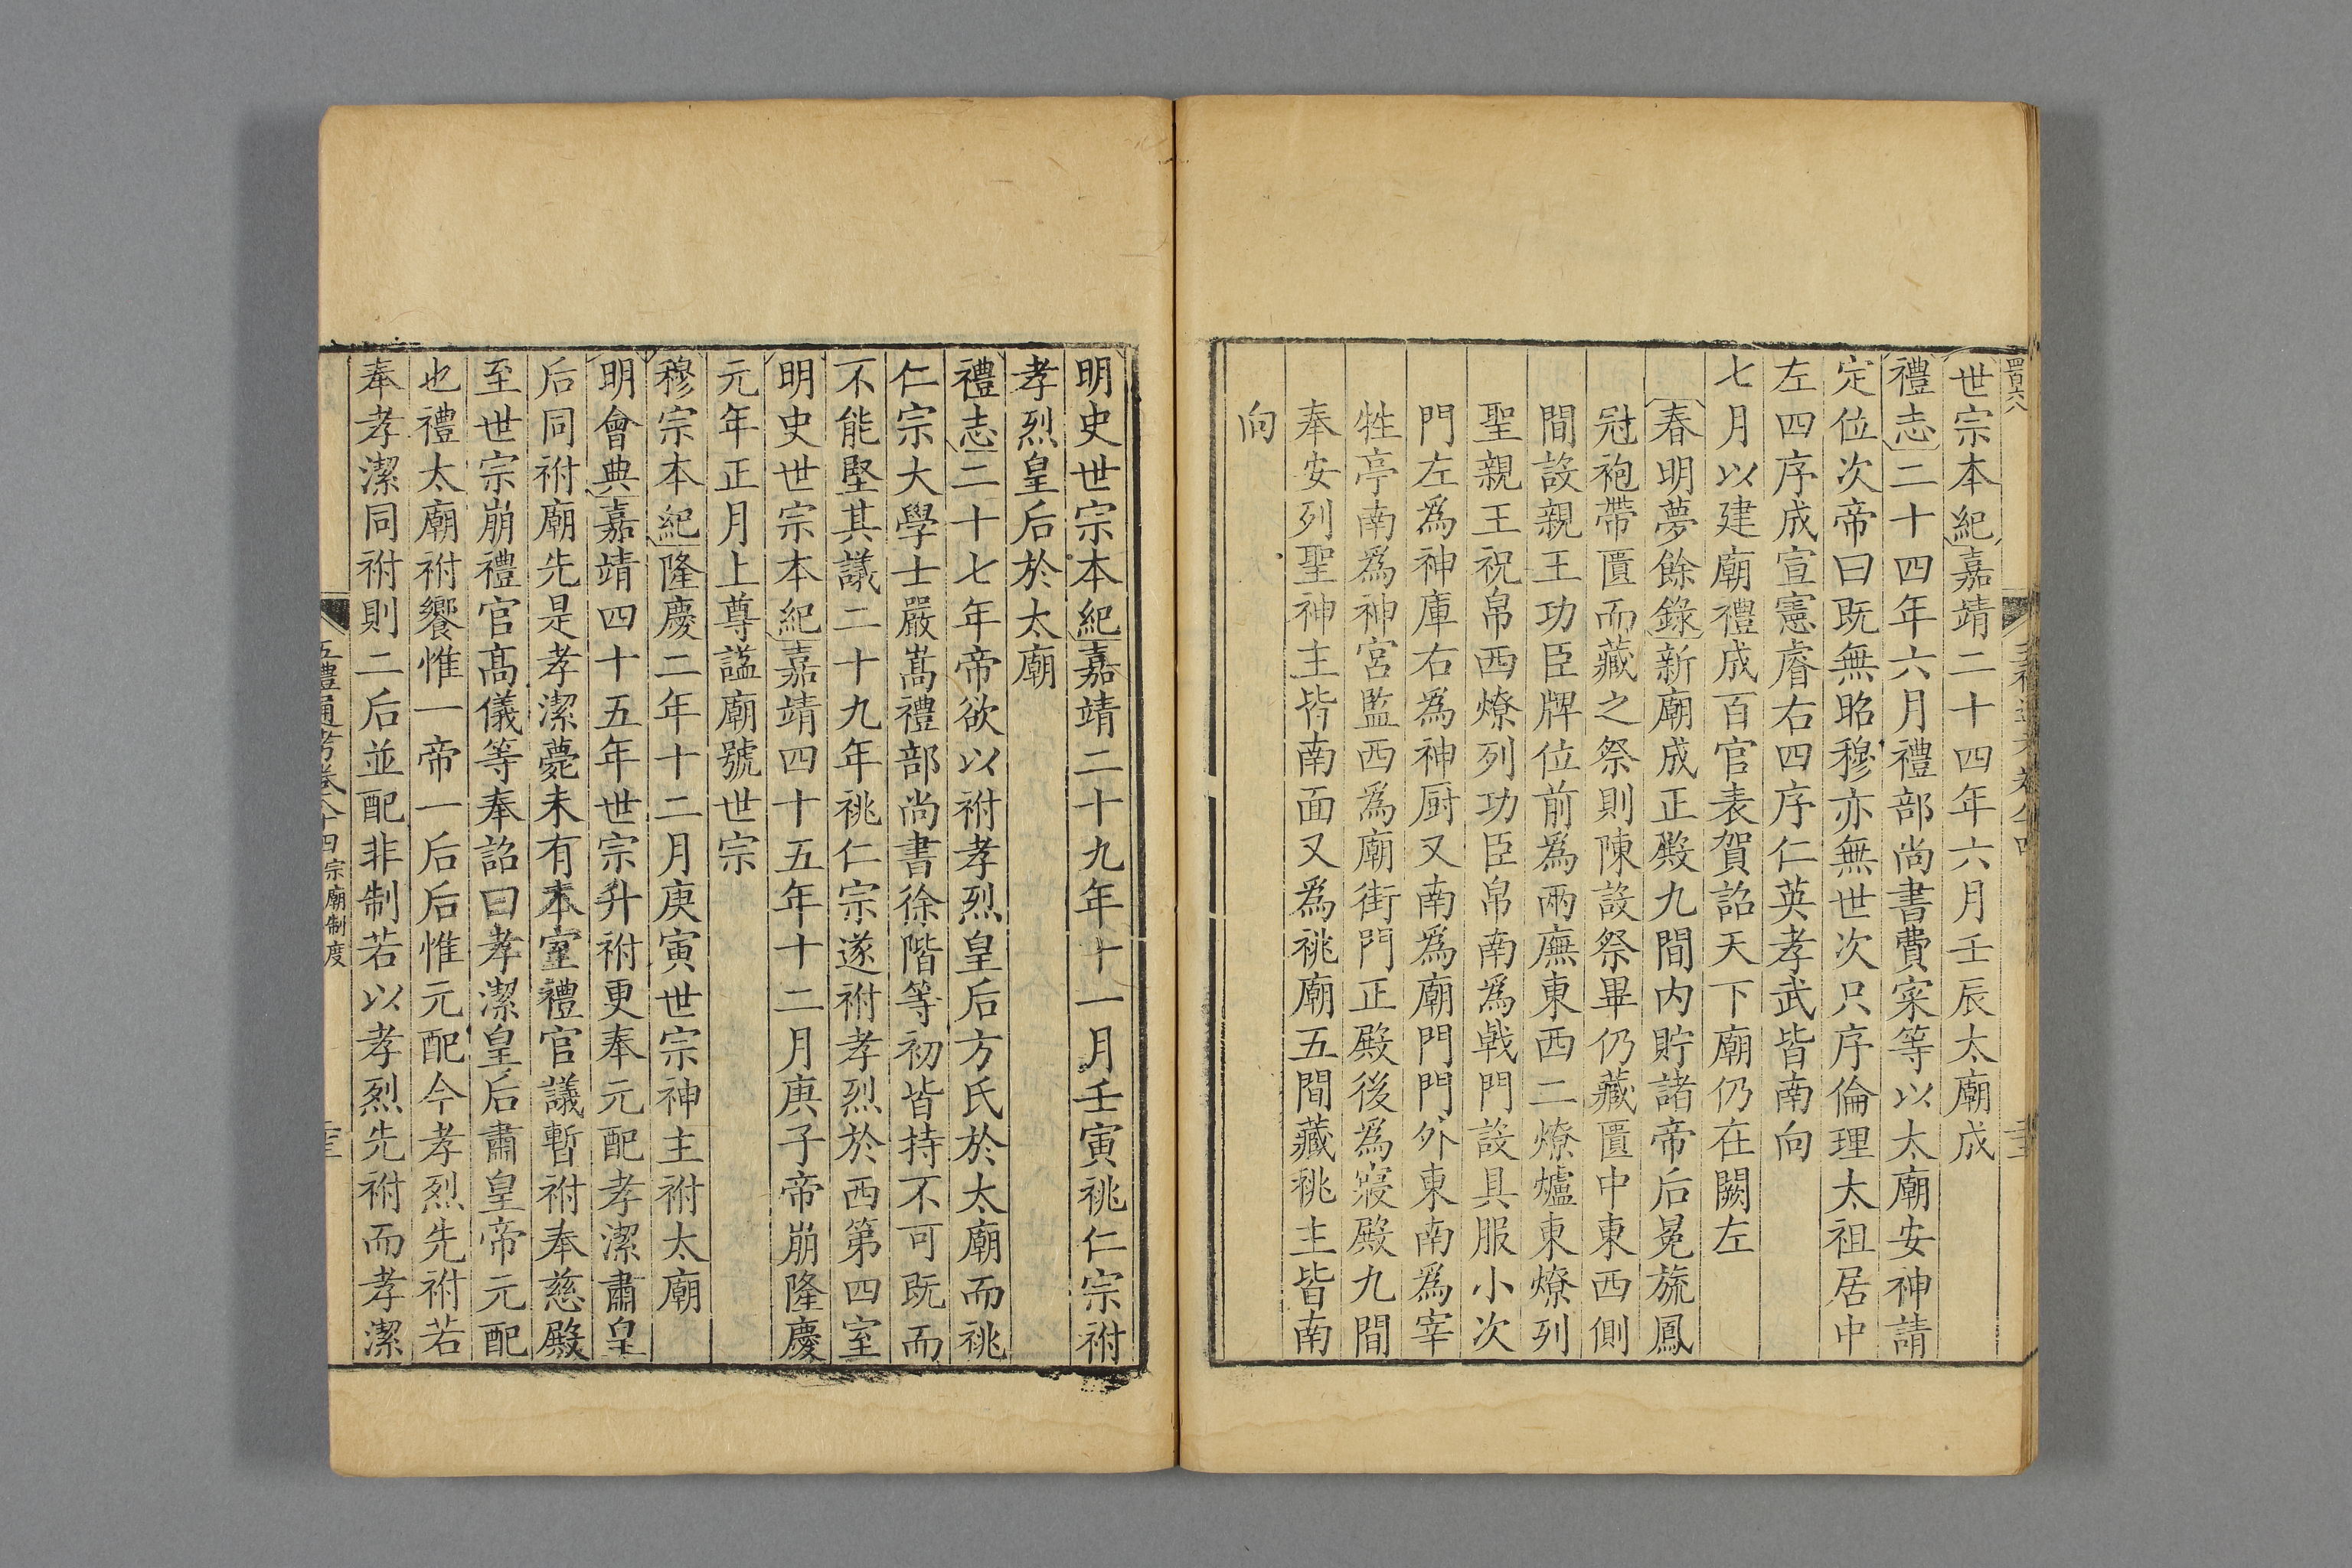 世宗本紀嘉靖二十四年六月壬辰太廟成
禮志二十四年六月禮部尚書費寀等以太廟安神請
定位次帝曰既無昭穆亦無世次只序倫理太祖居中
左四序成宣憲睿右四序仁英孝武皆南向
七月以建廟禮成百官表賀詔天下廟仍在闕左
春明夢餘錄新廟成正殿九間内貯諸帝后冕旒鳳
冠袍帶匱而藏之祭則陳設祭畢仍藏匱中東西側
間設親王功臣牌位前為兩廡東西二燎爐東燎列
聖親王祝帛西燎列功臣帛南為戟門設具服小次
門左為神庫右為神厨又南為廟門門外東南為宰
牲亭南為神宮監西為廟街門正殿後為寢殿九間
奉安列聖神主皆南面又為祧廟五間藏祧主皆南
向
明史世宗本紀嘉靖二十九年十一月壬寅祧仁宗祔
孝烈皇后於太廟
禮志二十七年帝欲以祔孝烈皇后方氏於太廟而祧
仁宗大學士嚴嵩禮部尚書徐階等初皆持不可既而
不能堅其議二十九年祧仁宗遂祔孝烈於西第四室
明史世宗本紀嘉靖四十五年十二月庚子帝崩隆慶
元年正月上尊謚廟號世宗
穆宗本紀隆慶二年十二月庚寅世宗神主祔太廟
明會典嘉靖四十五年世宗升祔更奉元配孝潔肅皇
后同祔廟先是孝潔薨未有本室禮官議暫祔奉慈殿
至世宗崩禮官高儀等奉詔曰孝潔皇后肅皇帝元配
也禮太廟祔饗惟一帝一后后惟元配今孝烈先祔若
奉孝潔同祔則二后並配非制若以孝烈先祔而孝潔
五禮通考卷八十四宗廟制度